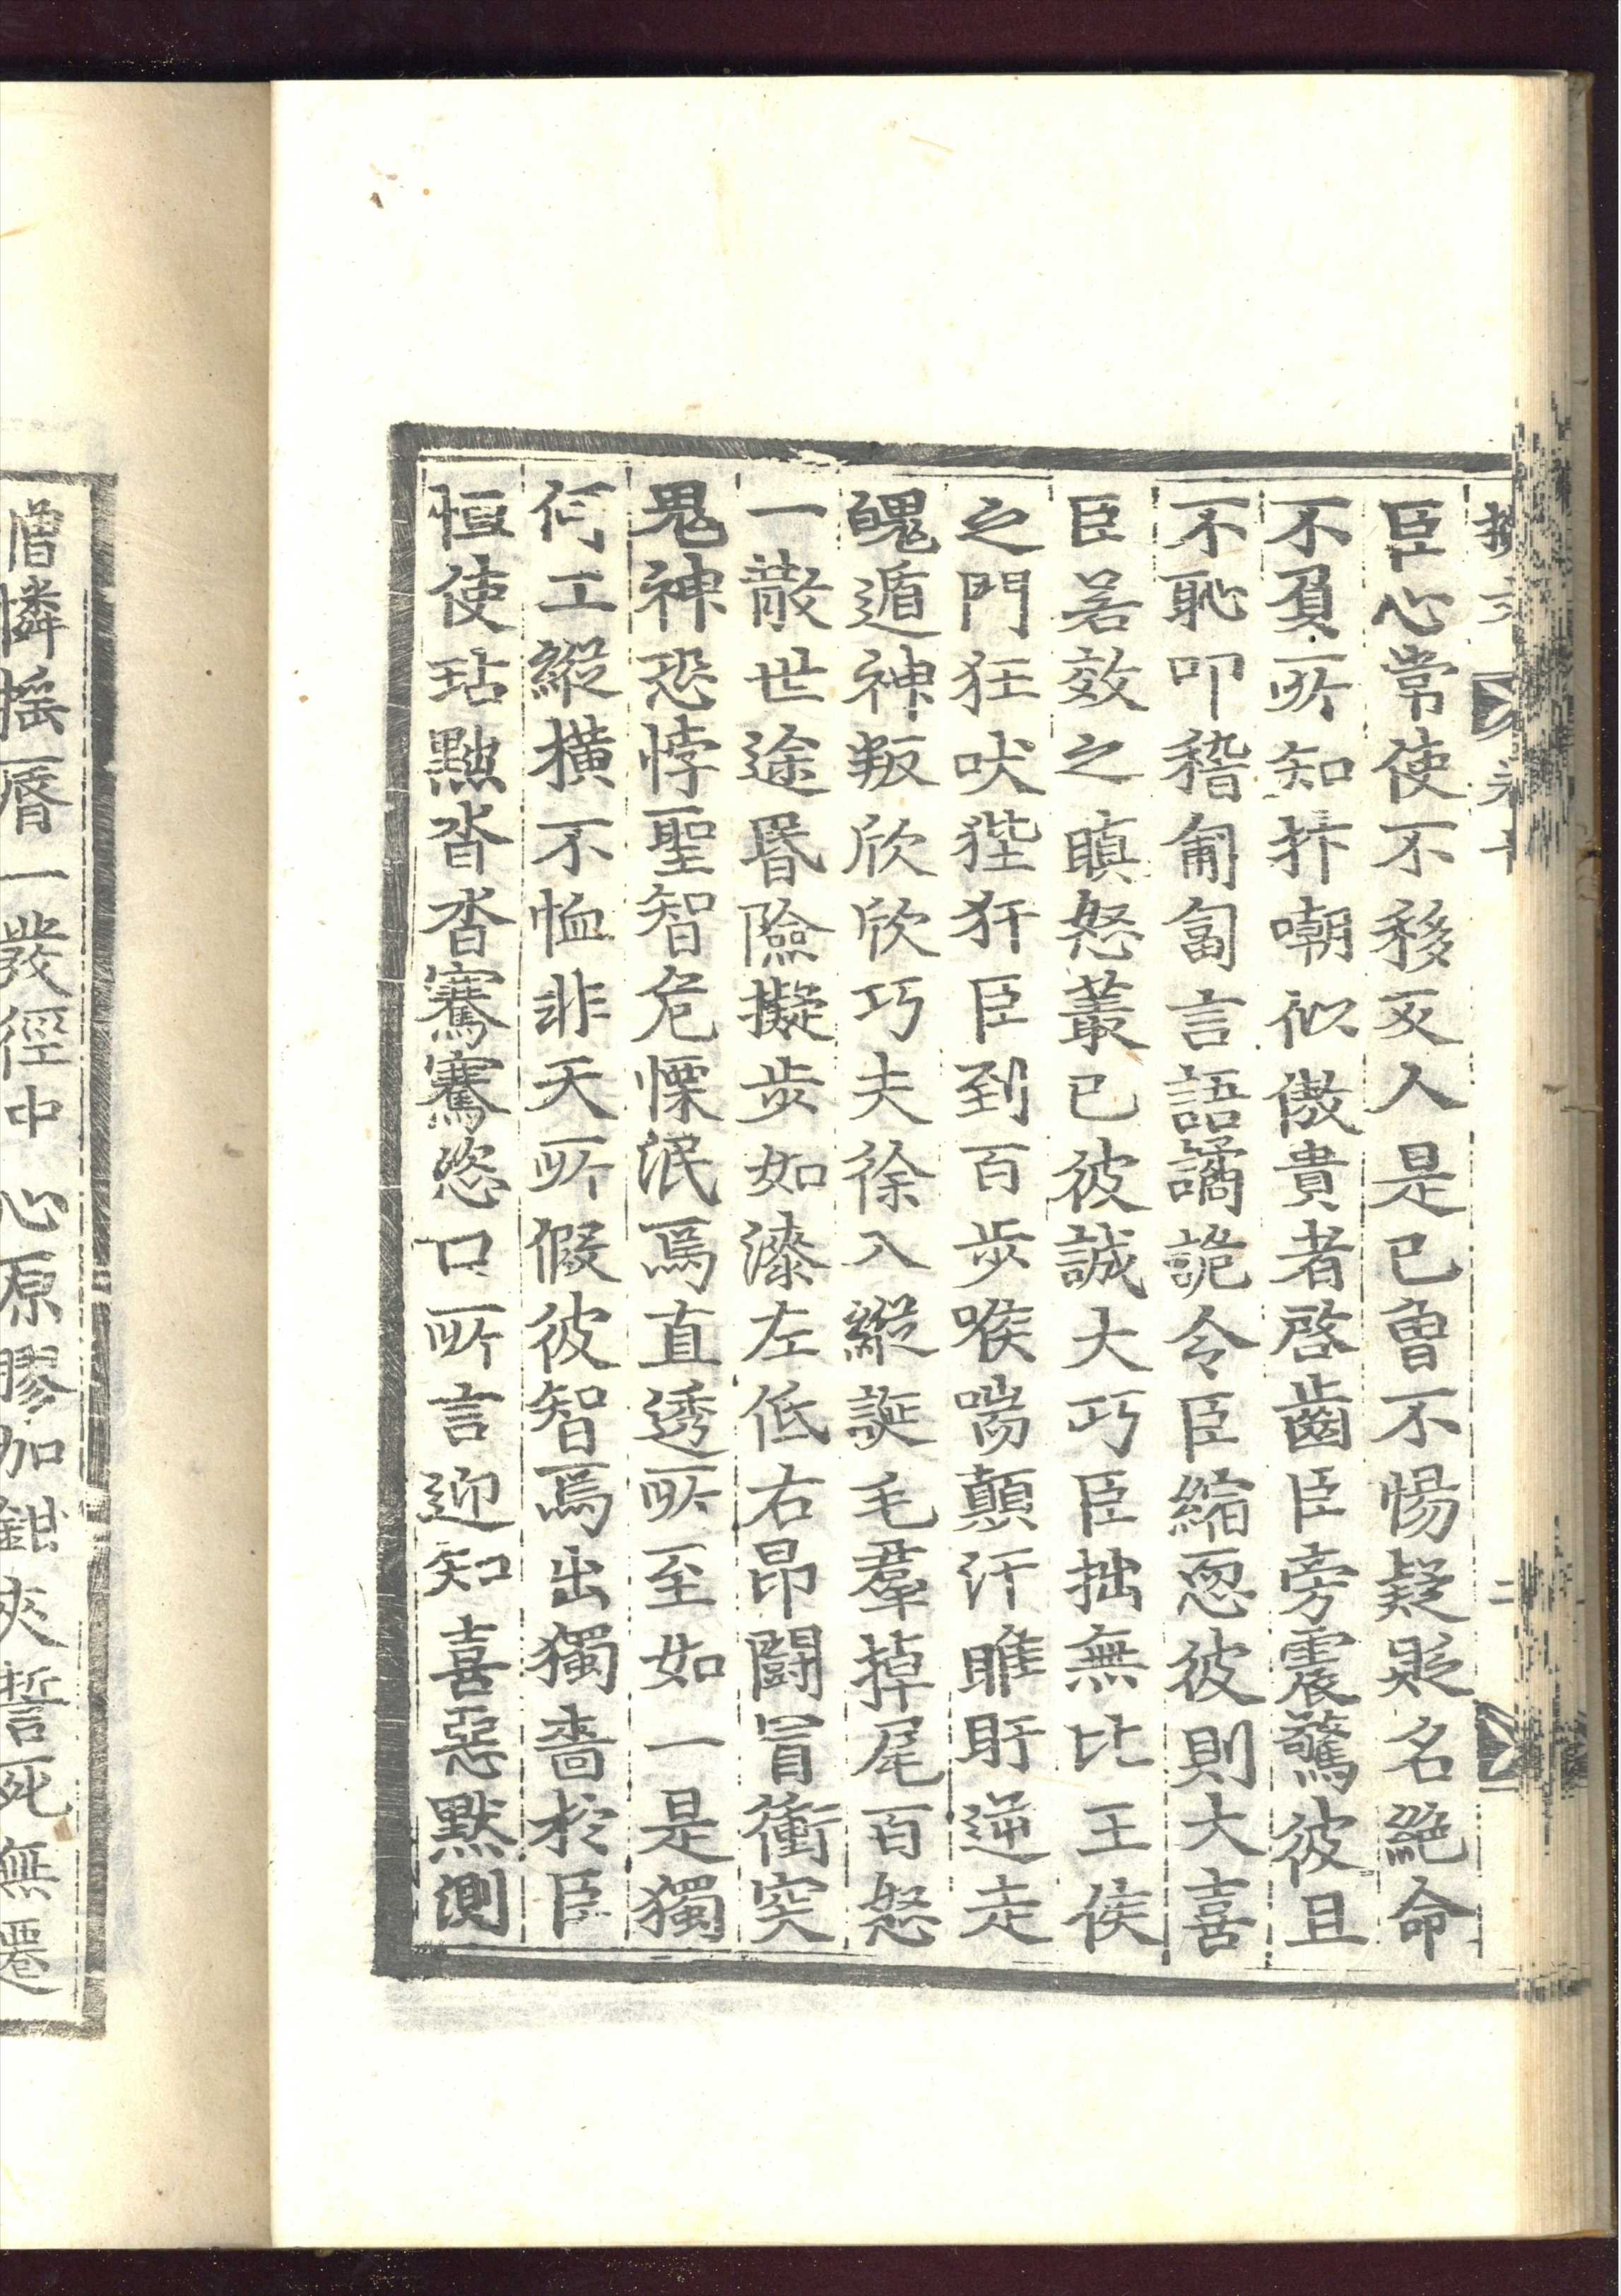 臣心常使不移反人是已曾不惕疑貶名絕命
不負所知抃嘲似傲貴者啓齒臣旁震驚彼且
不恥叩稽匍匐言語譎詭令臣縮恧彼則大喜
臣若效之瞋怒叢已彼誠大巧臣拙無比王侯
之門狂吠狴犴臣到百步喉喘顛汗睢盱逆走
魄遁神叛欣欣巧夫徐入縱誕毛羣掉尾百怒
一散世途昏險擬步如漆左低右昂鬪冒衝突
鬼神恐悸聖智危慄泯焉直透所至如一是獨
何工縱橫不恤非天所假彼智焉出獨嗇於臣
恒使玷黜沓沓騫騫恣口所言迎知喜惡默測
憎憐搖脣一發徑中心原膠加鉗夾誓死無遷